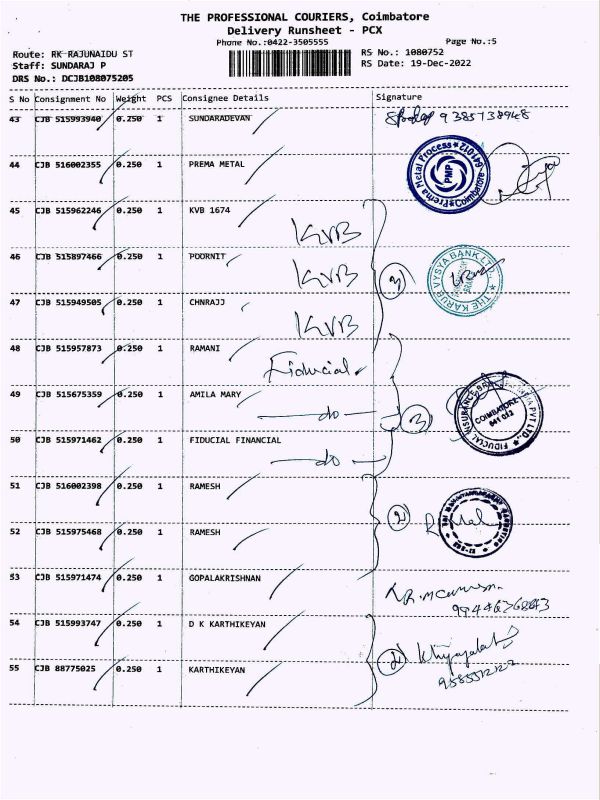 THE PROFESSIONAL COURIERS, Coimbatore
Delivery Runsheet - PCX
Phone No.:0422-3505555
Page No.:5
Route: RK-RAJUNAIDU ST
RS No.: 1080752
Staff: SUNDARAJ P
RS Date: 19-Dec-2022
DRS No.: DCJB108075205
S No Consignment No Weight PCS Consignee Details Signature
43 CJB 515993940 0.250 1 SUNDARADEVAN 9385738948
44 CJB 516002355 0.250 1 PREMA METAL
Prema Metal Process Coimbatore 641012
PMP
45 CJB 515962246 0.250 1 KVB 1674
KVB
46 CJB 515897466 0.250 1 POORNIT
KVB
3
THE KARUR VYSYA BANK LTD.
47 CJB 515949505 0.250 1 CHNRAJJ
KVB
48 CJB 515957873 0.250 1 RAMANI
Fiducial
49 CJB 515675359 0.250 1 AMILA MARY
do
3
FIDUCIAL INSURANCE PVT LTD.
COIMBATORE
641 012
50 CJB 515971462 0.250 1 FIDUCIAL FINANCIAL
do
51 CJB 516002398 0.250 1 RAMESH
2
52 CJB 515975468 0.250 1 RAMESH
53 CJB 515971474 0.250 1 GOPALAKRISHNAN
54 CJB 515993747 0.250 1 D K KARTHIKEYAN
2
55 CJB 88775025 0.250 1 KARTHIKEYAN